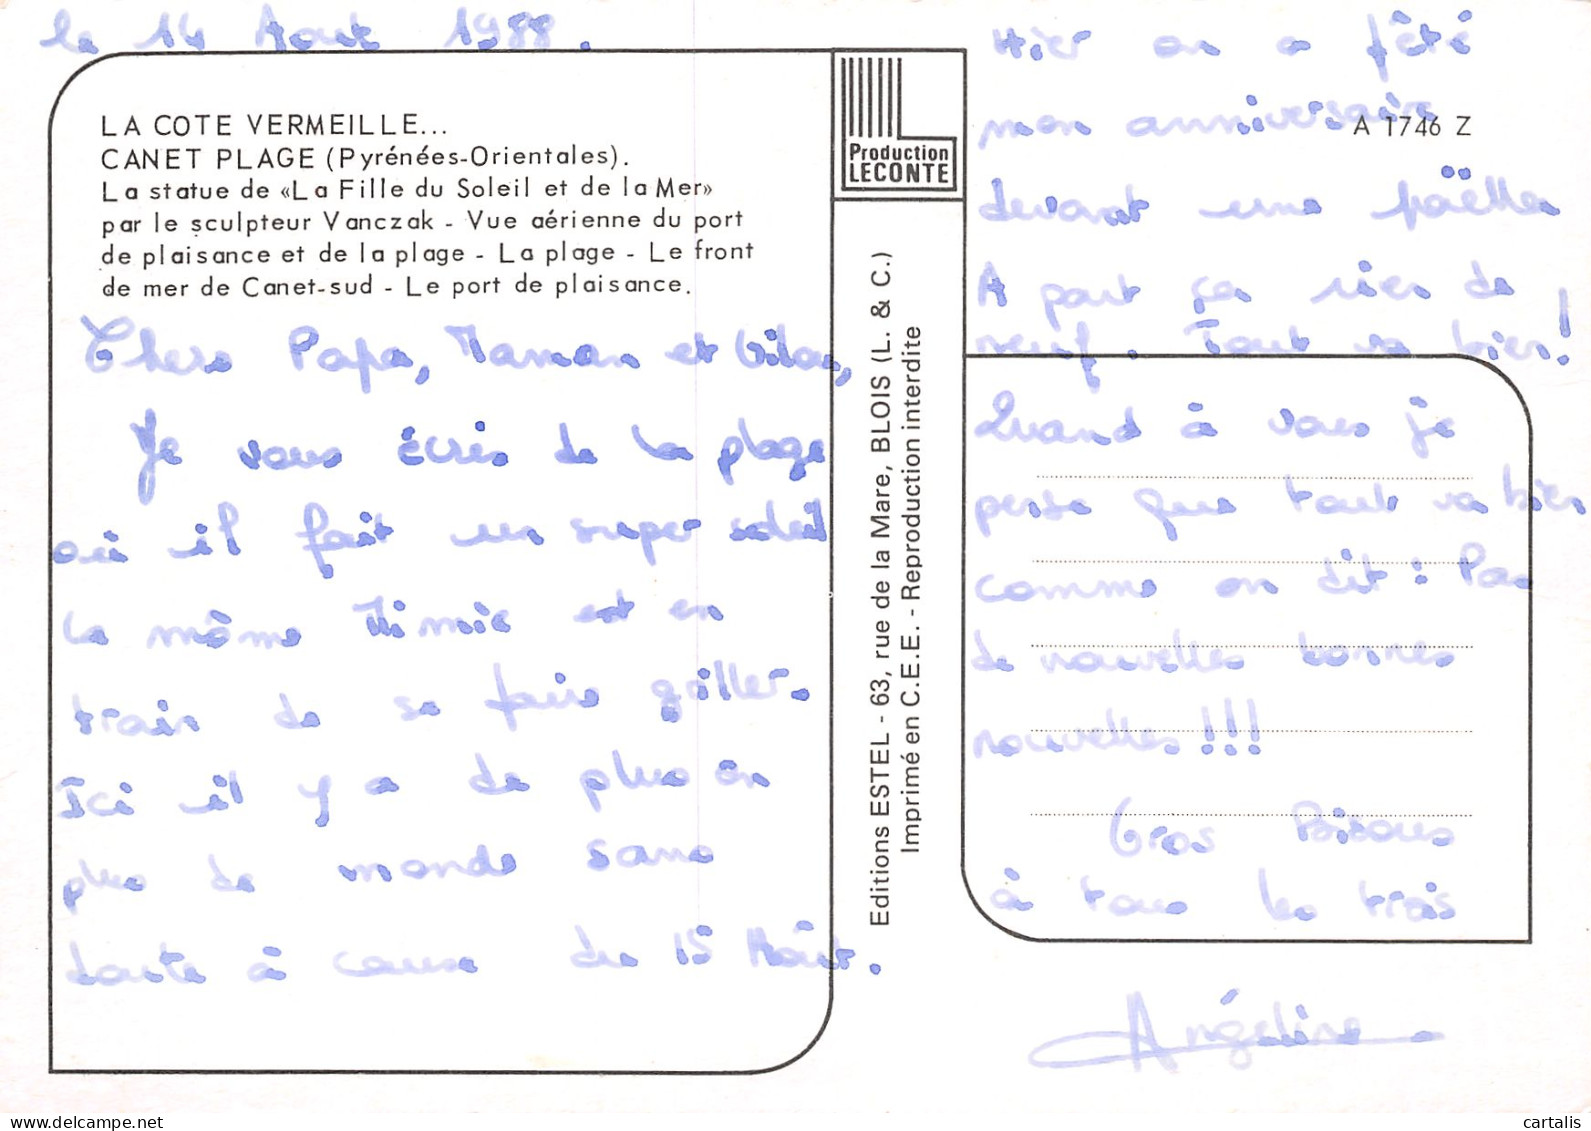 le 14 Août 1988.
LA COTE VERMEILLE...
CANET PLAGE (Pyrénées-Orientales).
La statue de «La Fille du Soleil et de la Mer»
par le sculpteur Vanczak - Vue aérienne du port
de plaisance et de la plage - La plage - Le front
de mer de Canet-sud - Le port de plaisance.
Chers Papa, Maman et
Je vous écris de la plage
où il fait un super soleil
la même Mimie est en
train de se faire griller.
Ici il y a de plus en
plus de monde sans
doute à cause du 15 Août.
Production
LECONTE
Editions ESTEL - 63, rue de la Mare, BLOIS (L. & C.)
Imprimé en C.E.E. - Reproduction interdite
A 1746 Z
Hier on a fêté
mon anniversaire
devant une paëlla
A part ça rien de
neuf. Tout va bien!
Quand à vous je
pense que tout va bien
comme on dit : Pas
de nouvelles bonnes
nouvelles!!!
Gros Bisous
à tous les trois
Angéline
delcampe.net
cartalis